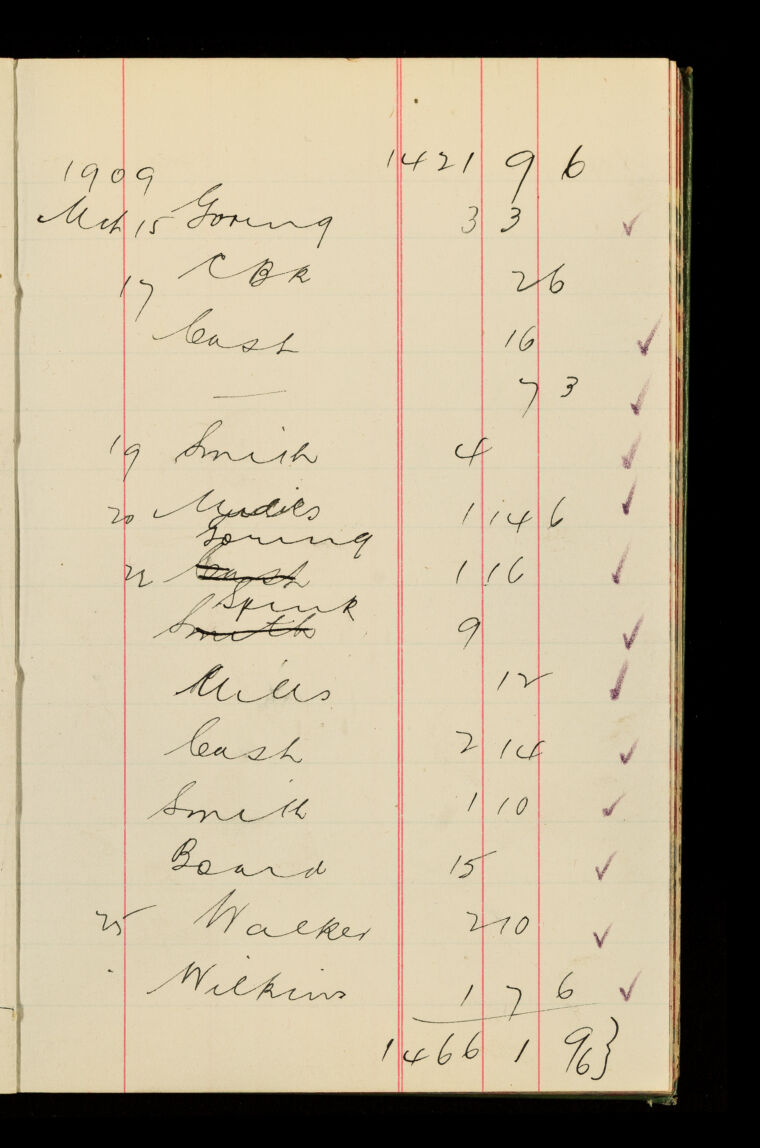 1909 1421 9 6
Mch 15 Goring 3 3 ✓
17 C B R 2 6
Cash 16 ✓
— 7 3 ✓
19 Smith 4 ✓
20 Mudies 1 14 6 ✓
Goring
22 Cash 1 16 ✓
Spink
Smith 9 ✓
Mills 12 ✓
Cash 2 14 ✓
Smith 1 10 ✓
Board 15 ✓
25 Walker 2 10 ✓
Wilkins 1 7 6 ✓
1466 1 9
6}